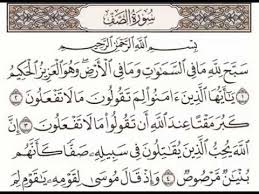 سُورَةُ الصَّفِّ
بِسْمِ اللَّهِ الرَّحْمَٰنِ الرَّحِيمِ
سَبَّحَ لِلَّهِ مَا فِي السَّمَٰوَٰتِ وَمَا فِي الْأَرْضِ وَهُوَ الْعَزِيزُ الْحَكِيمُ
١ يَٰٓأَيُّهَا الَّذِينَ ءَامَنُوا لِمَ تَقُولُونَ مَا لَا تَفْعَلُونَ ٢
كَبُرَ مَقْتًا عِندَ اللَّهِ أَن تَقُولُوا مَا لَا تَفْعَلُونَ ٣ إِنَّ
اللَّهَ يُحِبُّ الَّذِينَ يُقَٰتِلُونَ فِي سَبِيلِهِ صَفًّا كَأَنَّهُم
بُنْيَٰنٌ مَّرْصُوصٌ ٤ وَإِذْ قَالَ مُوسَىٰ لِقَوْمِهِ يَٰقَوْمِ لِمَ